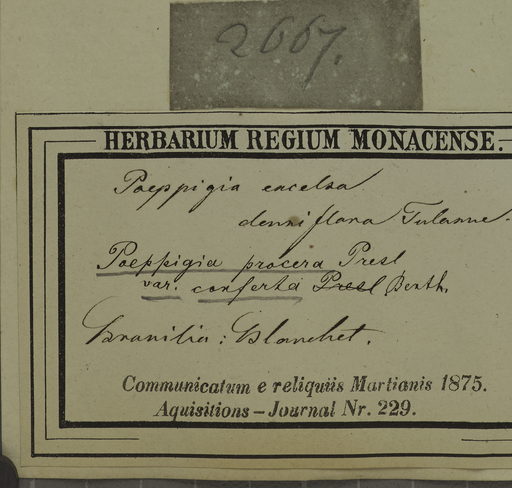 2667.
HERBARIUM REGIUM MONACENSE.
Poeppigia excelsa
densiflora Tulasne.
Poeppigia procera Presl
var. conferta Presl Benth.
Brasilia: Blanchet.
Communicatum e reliquiis Martianis 1875.
Aquisitions-Journal Nr. 229.